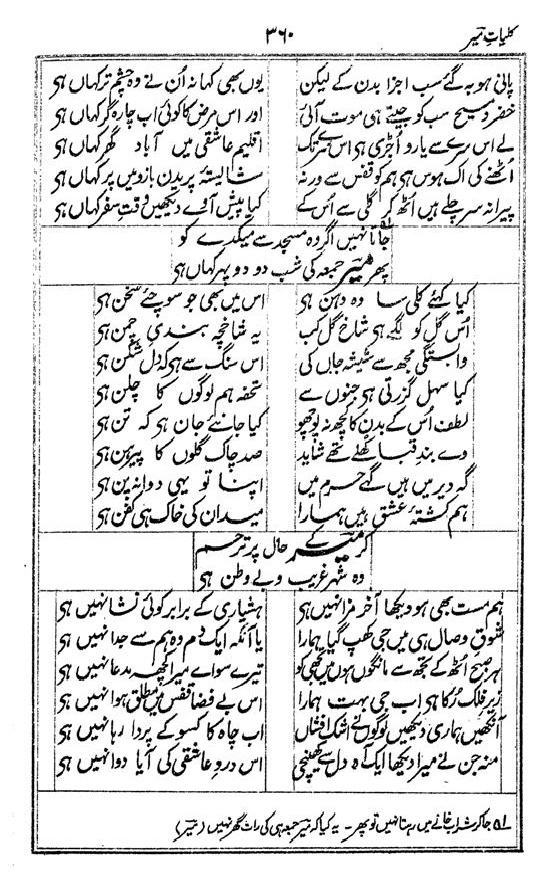 کلیاتِ میر
۳۶۰
پانی ہو بہ گئے سب اجزا بدن کے لیکن یوں بھی کہا نہ اُن نے وہ چشمِ تر کہاں ہی
خضر و مسیح سب کو جیتے ہی موت آئی اور اس مرض کا کوئی اب چارہ گر کہاں ہی
لے اس سرے سے یارو اُجڑی ہی اس سرے تک اقلیمِ عاشقی میں آباد گھر کہاں ہی
اُٹھنے کی اک ہوس ہی ہم کو قفس سے ورنہ شائستۂ پریدن بازو میں پر کہاں ہی
پیرانہ سر چلے ہیں اٹھ کر گلی سے اُس کے کیا پیش آوے دیکھیں وقتِ سفر کہاں ہی
جاتا نہیں اگر وہ مسجد سے میکدے کو
پھر میر جمعہ کی شب دو دو پہر کہاں ہی
کیا کہئے کلی سا وہ دہن ہی اس میں بھی جو سوچئے سخن ہی
اُس گل کو لگے ہی شاخِ گل کب یہ شاخچہ بندیِ چمن ہی
وابستگی مجھ سے شیشہ جاں کی اس سنگ سے ہی کہ دل شکن ہی
کیا سہل گزرتی ہی جنوں سے تحفہ ہم لوگوں کا چلن ہی
لطف اُس کے بدن کا کچھ نہ پوچھو کیا جانئے جان ہی کہ تن ہی
وے بندِ قبا کھلے تھے شاید صد چاک گلوں کا پیرہن ہی
گہ دیر میں ہیں گہے حرم میں اپنا تو یہی دوانہ پن ہی
ہم کشتۂ عشق ہیں ہمارا میدان کی خاک ہی کفن ہی
کر میر کے حال پر ترحم
وہ شہر غریب و بے وطن ہی
ہم مست بھی ہو دیکھا آخر مزا نہیں ہی ہشیاری کے برابر کوئی نشا نہیں ہی
شوقِ وصال ہی میں جی کھپ گیا ہمارا با آنکہ ایک دم وہ ہم سے جدا نہیں ہی
ہر صبح اُٹھ کے تجھ سے مانگوں ہوں میں تجھی کو تیرے سوائے میرا کچھ مدعا نہیں ہی
زیرِ فلک رُکا ہی اب جی بہت ہمارا اس بے فضا قفس میں مطلق ہوا نہیں ہی
آنکھیں ہماری دیکھیں لوگوں نے اشک افشاں اب چاہ کا کسو کے پردا رہا نہیں ہی
منہ جن نے میرا دیکھا ایک آہ دل سے کھینچی اس دردِ عاشقی کی آیا دوا نہیں ہی
۱؎ جا کر شراب خانے میں رہتا نہیں تو پھر - یہ کیا کہ میر جمعہ ہی کی رات گھر نہیں (میر)